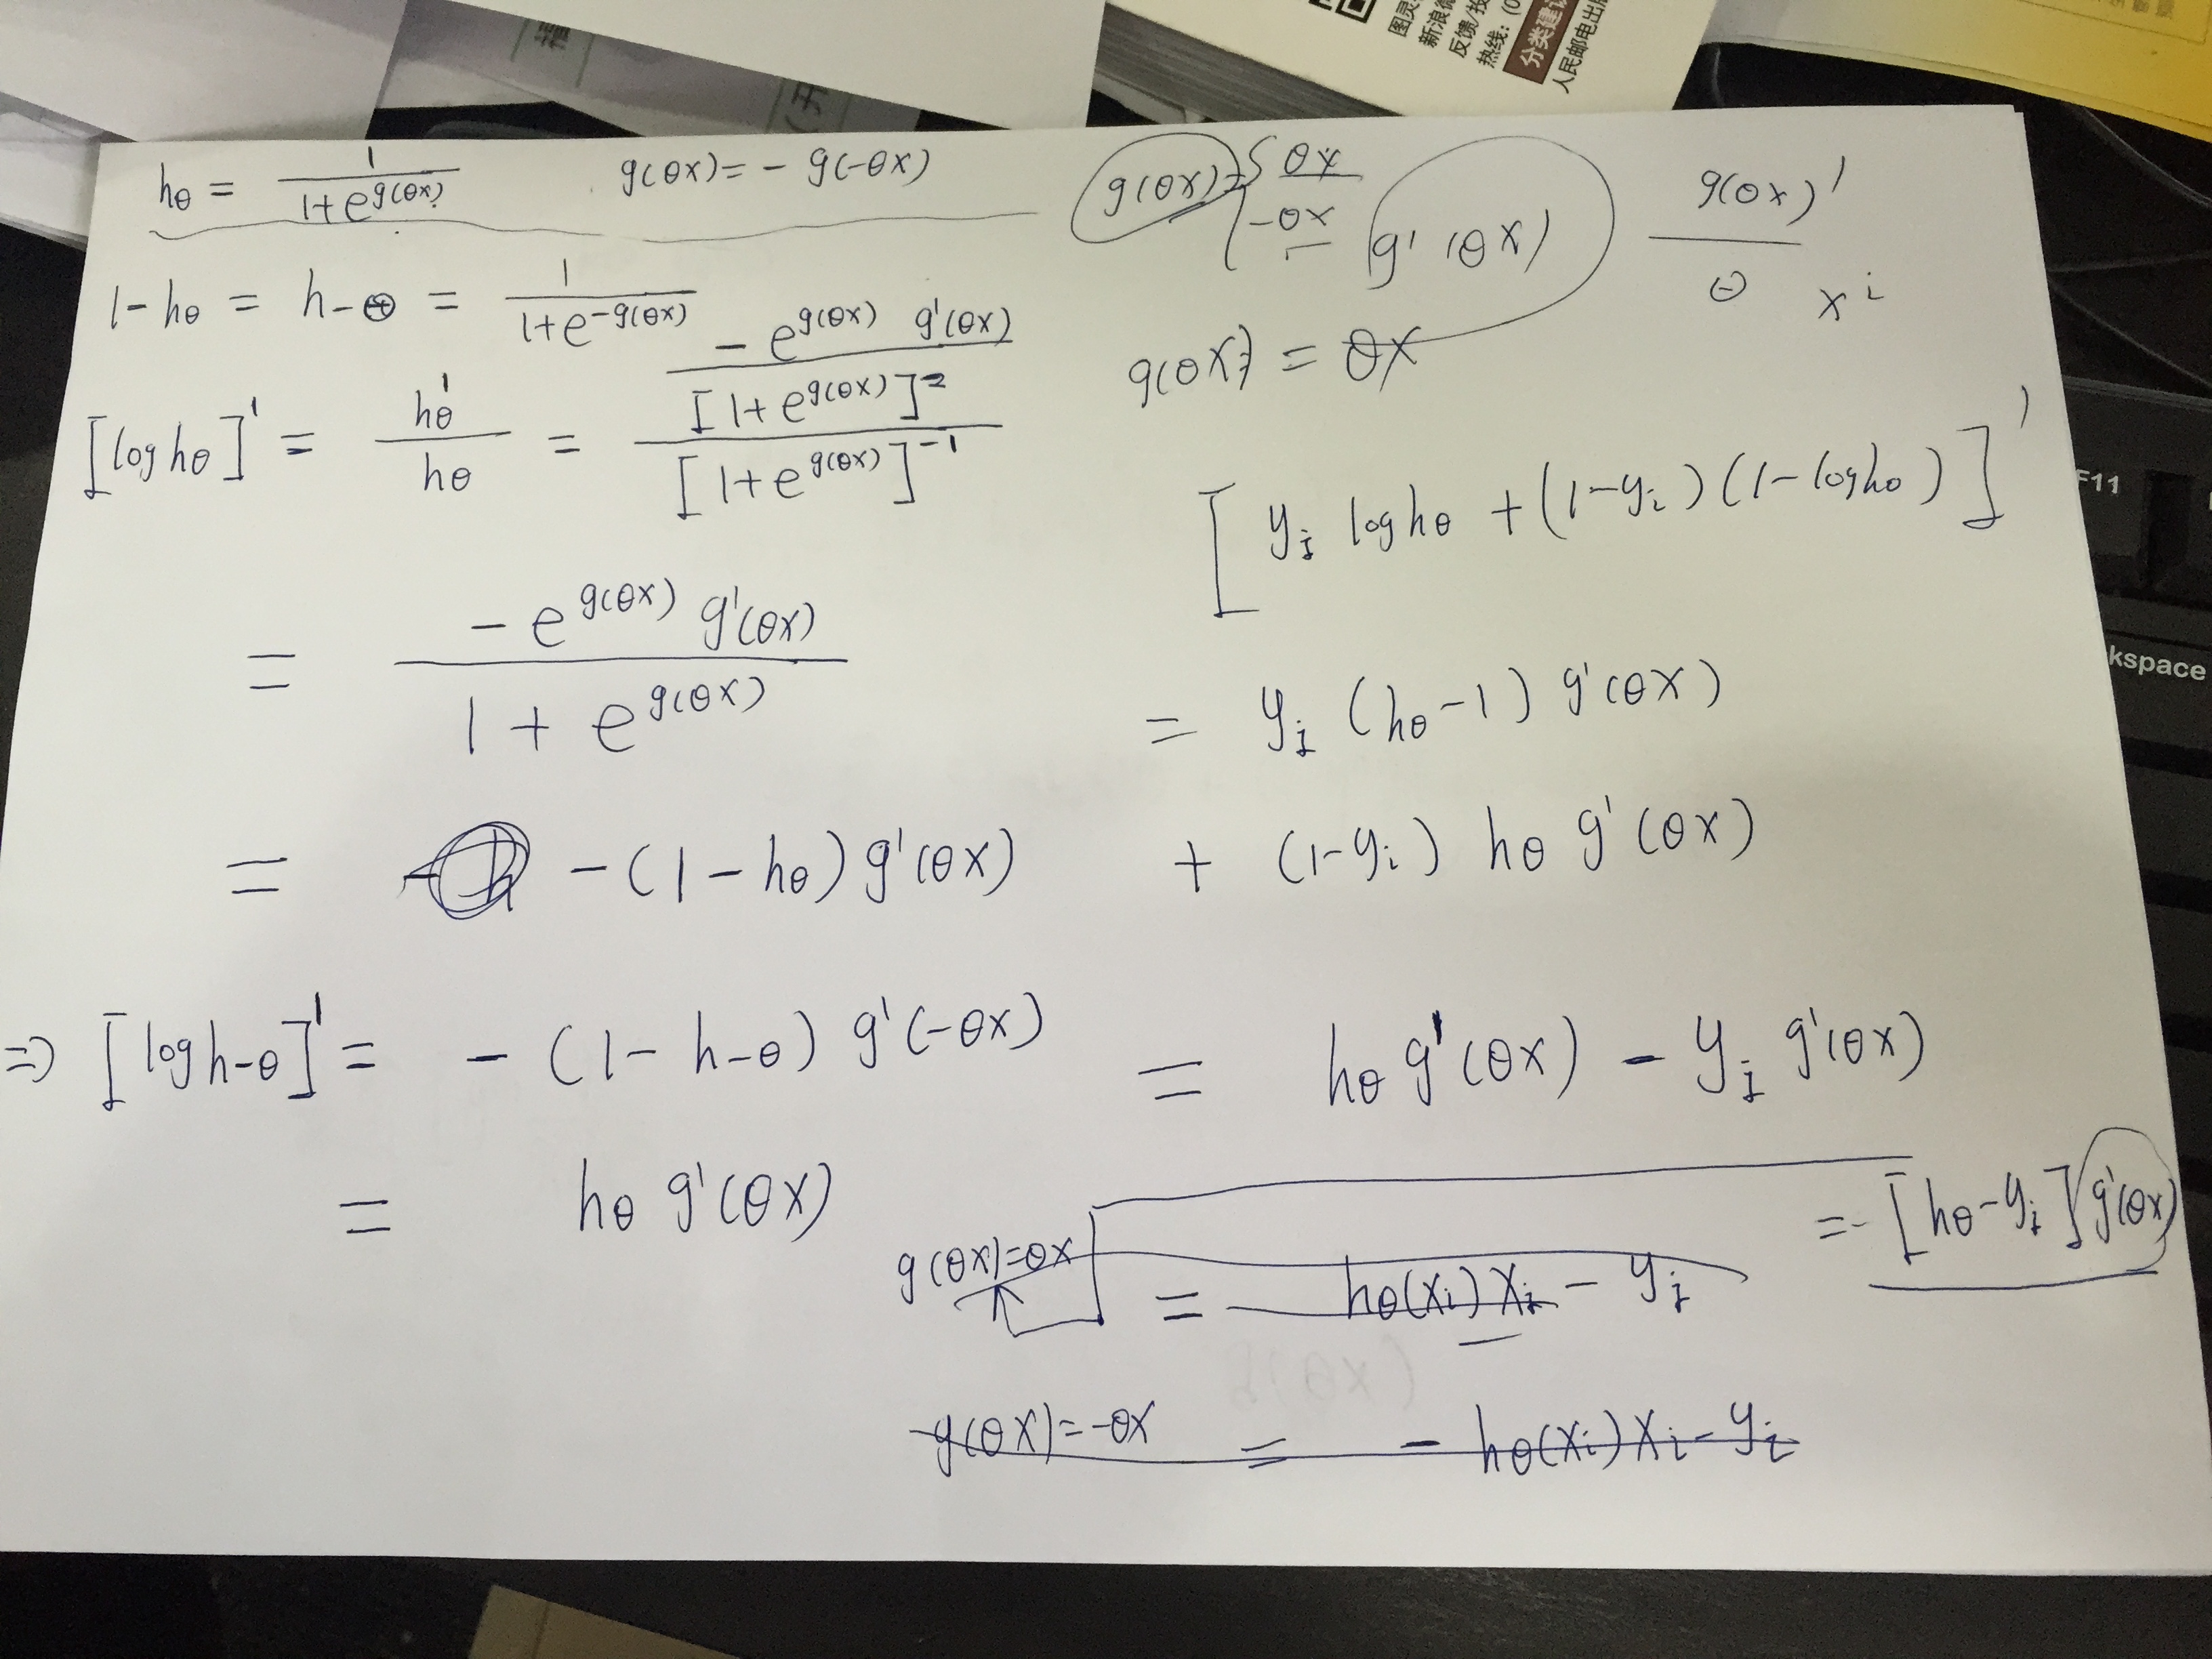 图灵
新浪微
反馈/投
热线: (0
分类建议
人民邮电出版
hθ = 1/(1+e^g(θx))
g(θx) = - g(-θx)
g(θx) = { θx
-θx
g'(θx)
g(θx)'
θ
x^i
1-hθ = h-θ = 1/(1+e^-g(θx))
g(θx) = θx
[log hθ]' = hθ'/hθ = (-e^g(θx) g'(θx)/[1+e^g(θx)]^2)/([1+e^g(θx)]^-1)
= (-e^g(θx) g'(θx))/(1+e^g(θx))
= -(1-hθ) g'(θx)
⇒ [log h-θ]' = -(1-h-θ) g'(-θx)
= hθ g'(θx)
[yi log hθ + (1-yi)(1-log hθ)]'
= yi (hθ-1) g'(θx)
+ (1-yi) hθ g'(θx)
= hθ g'(θx) - yi g'(θx)
= [hθ-yi] g'(θx)
g(θx)=θx = hθ(xi) xi - yi
g(θx)=-θx = - hθ(xi) xi - yi
F11
kspace